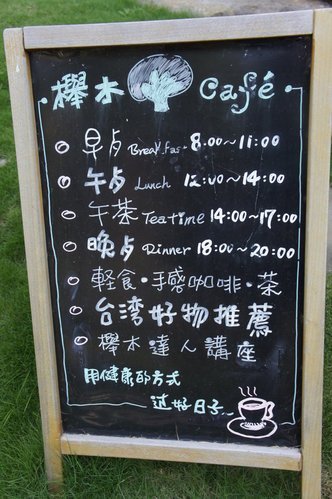 櫸木 Café
早点 Breakfast 8:00~11:00
午点 Lunch 12:00~14:00
午茶 Tea time 14:00~17:00
晚点 Dinner 18:00~20:00
輕食·手感咖啡·茶
台湾好物推薦
櫸木達人講座
用健康的方式
过好日子~